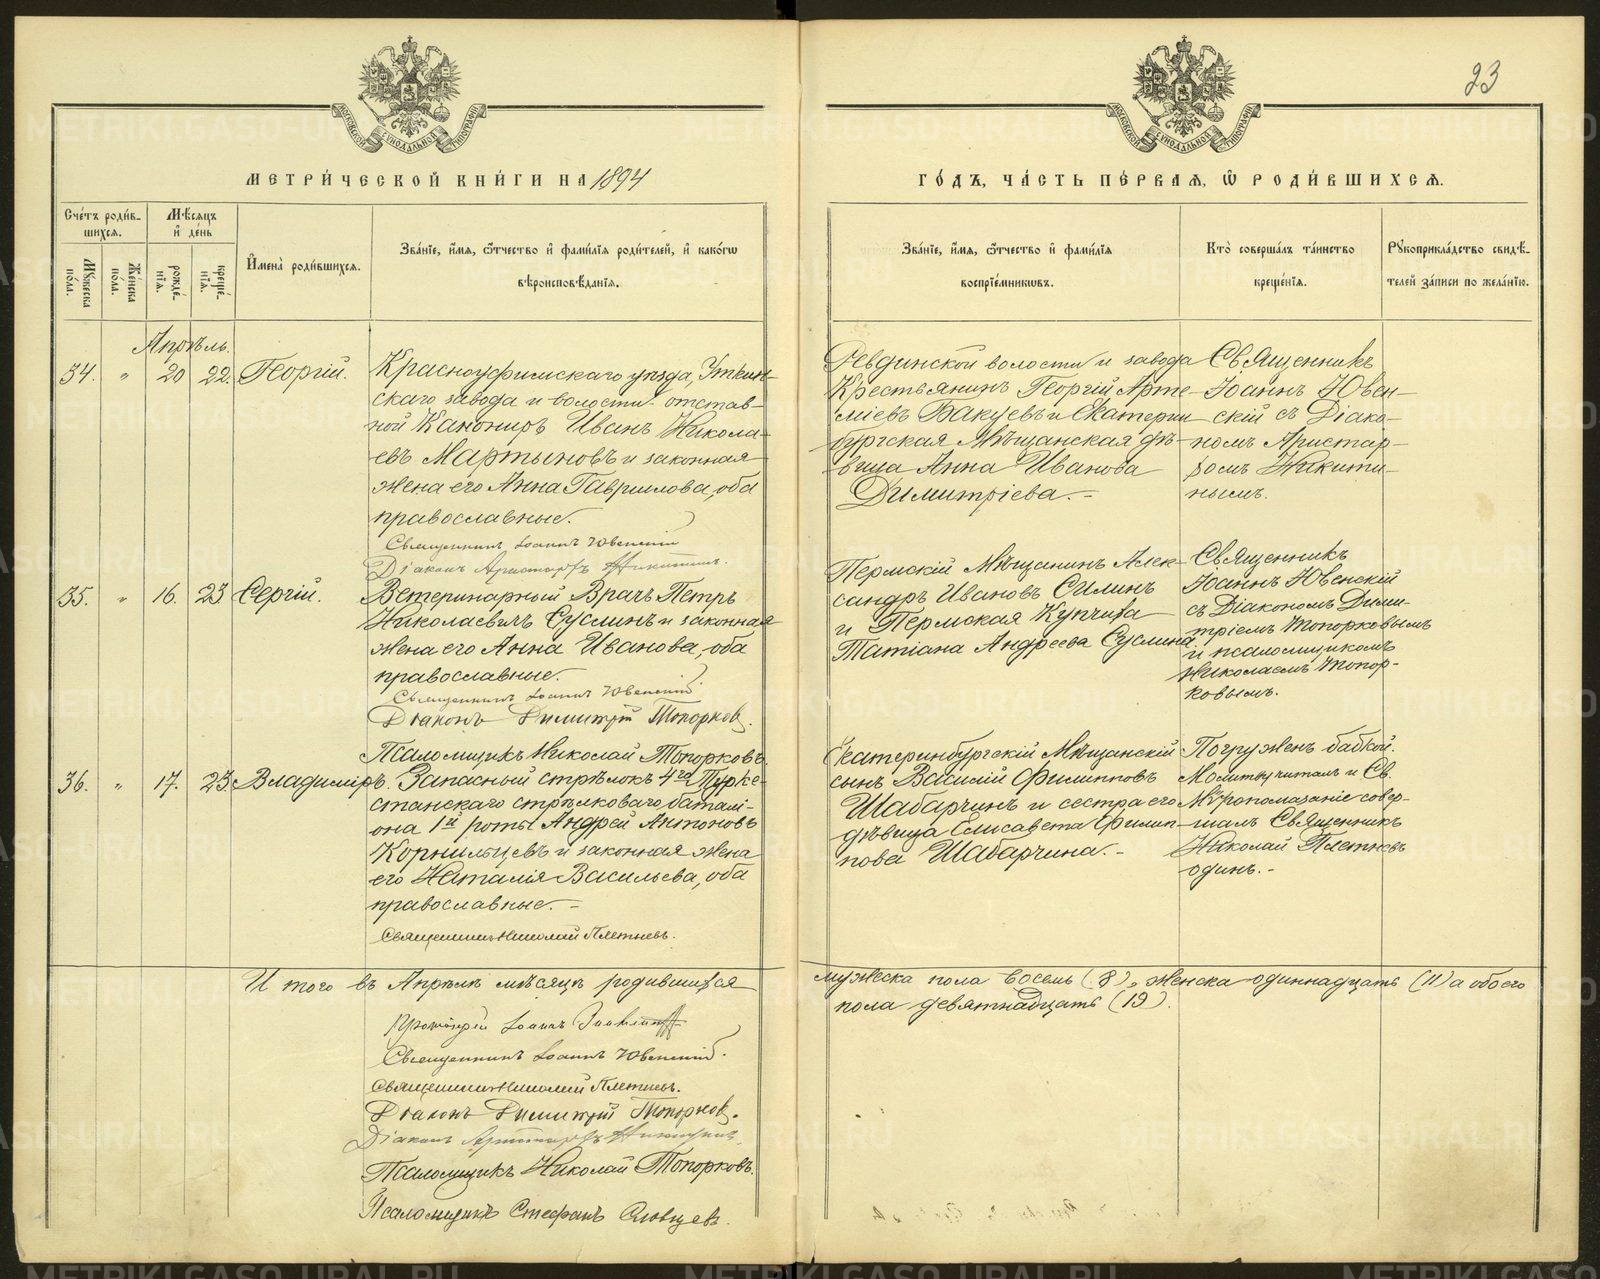 23
МОСКОВСКОЙ СѴНОДАЛЬНОЙ ТИПОГРАФІИ
МОСКОВСКОЙ СѴНОДАЛЬНОЙ ТИПОГРАФІИ
МЕТРИ́ЧЕСКОЙ КНИ́ГИ НА 1894
ГО́ДЪ, ЧА́СТЬ ПЕ́РВАЯ, Ѽ РОДИ́ВШИХСѦ.
Сче́тъ роди́в-
шихся.
Мѣ́сяцъ
и҆ де́нь
Му́жеска
по́ла.
Же́нска
по́ла.
рожде́-
нїя.
креще́-
нїя.
И҆мена̀ роди́вшихся.
Зва́нїе, и҆́мя, ѻ҆́тчество и҆ фами́лїя роди́телей, и҆ како́гѡ
вѣроисповѣ́данїя.
Зва́нїе, и҆́мя, ѻ҆́тчество и҆ фами́лїя
воспрїе́мникѡвъ.
Кто̀ соверша́лъ та́инство
креще́нїя.
Рꙋкоприкла́дство свидѣ́-
телей за́писи по жела́нїю.
Апрѣль.
34. " 20 22. Георгій.
Красноуфимскаго уѣзда, Уткин-
скаго завода и волости отстав-
ной Канониръ Иванъ Никола-
евъ Мартыновъ и законная
жена его Анна Гавриилова, оба
православные.
Священникъ Іоаннъ Ювенскій
Діаконъ Аристархъ Никитинъ.
Ревдинской волости и завода
Крестьянинъ Георгій Арте-
міевъ Бакуевъ и Екатерин
бургская Мѣщанская дѣ-
вица Анна Иванова
Димитріева.-
Священникъ
Іоаннъ Ювен-
скій съ Діако-
номъ Аристар-
хомъ Никити-
нымъ.
35. " 16. 23 Сергій.
Ветеринарный Врачъ Петръ
Николаевичъ Суслинъ и законная
жена его Анна Иванова, оба
православные.
Священникъ Іоаннъ Ювенскій
Діаконъ Димитрій Топорковъ.
Псаломщикъ Николай Топорковъ.
Пермскій Мѣщанинъ Алек-
сандръ Ивановъ Силинъ
и Пермская Купчиха
Татіана Андреева Суслина
Священникъ
Іоаннъ Ювенскій
съ Діакономъ Дими-
тріемъ Топорковымъ
и псаломщикомъ
Николаемъ Топор-
ковымъ.
36. " 17. 23. Владимиръ.
Запасный стрѣлокъ 4го Турке-
станскаго стрѣлковаго баталі-
она 1й роты Андрей Антоновъ
Корнильцевъ и законная жена
его Наталія Васильева, оба
православные.-
Священникъ Николай Плетневъ.
Екатеринбургскій Мѣщанскій
сынъ Василій Филипповъ
Шабарчинъ и сестра его
дѣвица Елисавета Филип-
пова Шабарчина.-
Погруженъ бабкой.
Молитву читалъ и Св.
Мѵропомазаніе совер-
шалъ Священникъ
Николай Плетневъ
одинъ.-
И того въ Апрѣлѣ мѣсяцѣ родившихся
мужеска пола восемь (8), женска одиннадцать (11) а обоего
пола девятнадцать (19).
Протоіерей Іоаннъ
Священникъ Іоаннъ Ювенскій.
Священникъ Николай Плетневъ.
Діаконъ Димитрій Топорковъ.
Діаконъ Аристархъ Никитинъ.
Псаломщикъ Николай Топорковъ.
Псаломщикъ Стефанъ Словцевъ.
METRIKI.GASO-URAL.RU